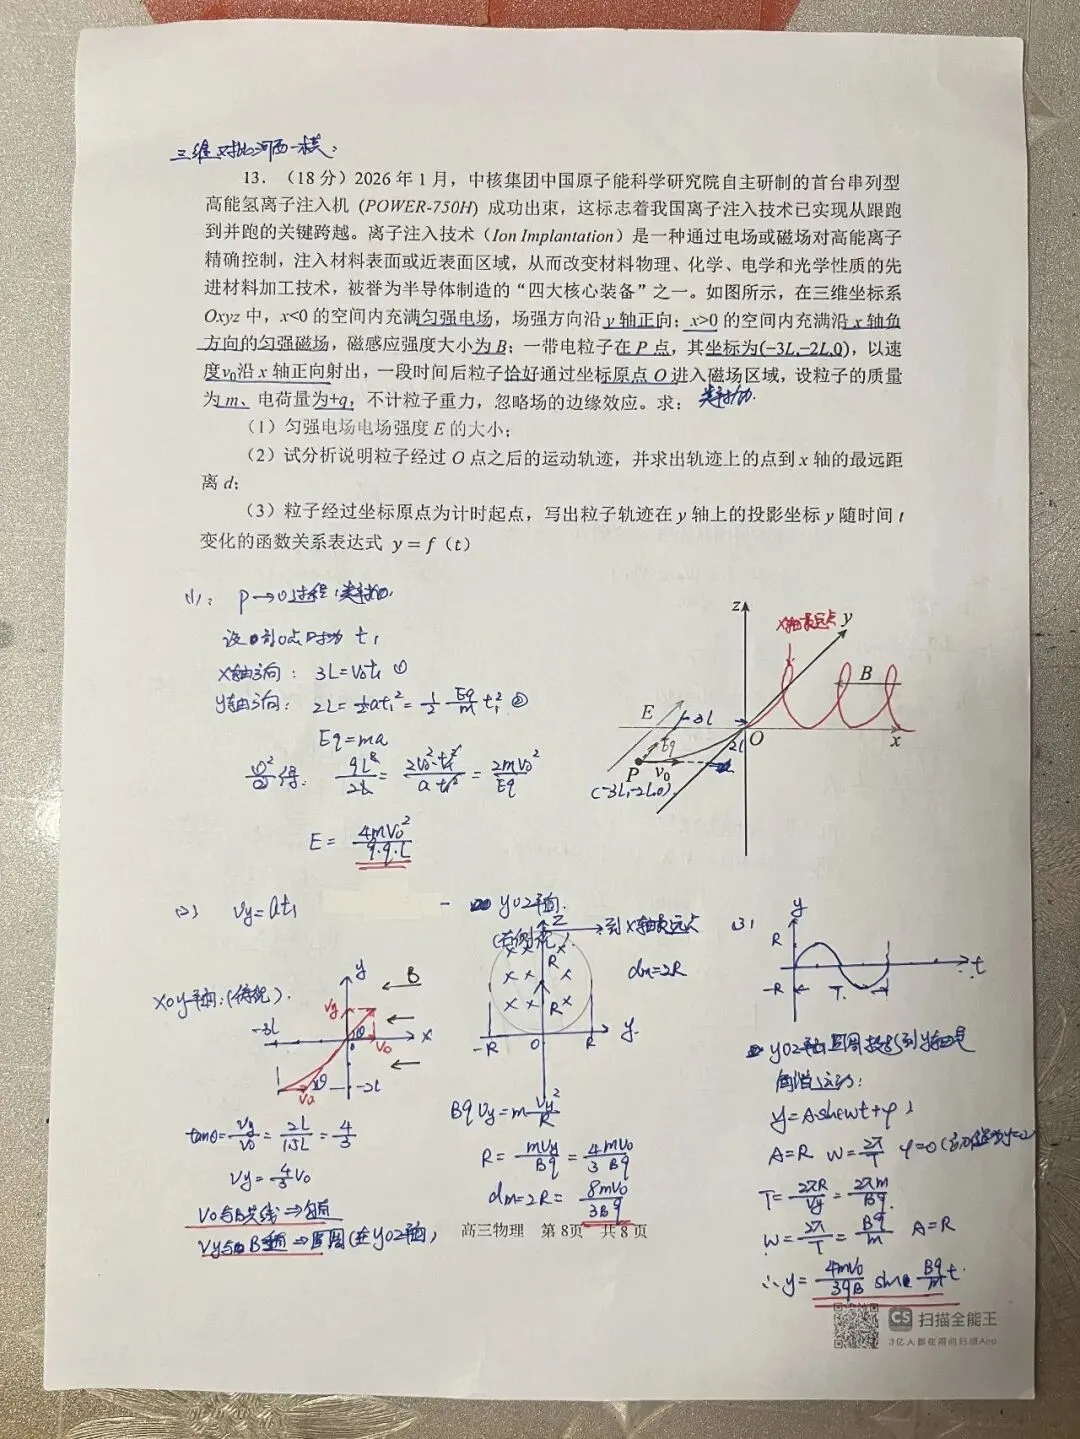 三维对比河西一模:
13. （18 分）2026 年 1 月，中核集团中国原子能科学研究院自主研制的首台串列型
高能氢离子注入机 (POWER-750H) 成功出束，这标志着我国离子注入技术已实现从跟跑
到并跑的关键跨越。离子注入技术（Ion Implantation）是一种通过电场或磁场对高能离子
精确控制，注入材料表面或近表面区域，从而改变材料物理、化学、电学和光学性质的先
进材料加工技术，被誉为半导体制造的“四大核心装备”之一。如图所示，在三维坐标系
Oxyz 中，x<0 的空间内充满匀强电场，场强方向沿 y 轴正向；x>0 的空间内充满沿 x 轴负
方向的匀强磁场，磁感应强度大小为 B；一带电粒子在 P 点，其坐标为(−3L,−2L,0)，以速
度v₀沿 x 轴正向射出，一段时间后粒子恰好通过坐标原点 O 进入磁场区域，设粒子的质量
为 m、电荷量为+q，不计粒子重力，忽略场的边缘效应。求：
（1）匀强电场电场强度 E 的大小；
（2）试分析说明粒子经过 O 点之后的运动轨迹，并求出轨迹上的点到 x 轴的最远距
离 d；
（3）粒子经过坐标原点为计时起点，写出粒子轨迹在 y 轴上的投影坐标 y 随时间 t
变化的函数关系表达式 y = f（t）
(1): P→O过程:类平抛.
到O点时为 t₁
x轴方向: 3L=v₀t₁ ①
y轴方向: 2L=½at₁²=½ Eq/m t₁² ②
Eq=ma
①²/② 得: 9L²/2L = 2v₀²·t₁²/at₁² = 2mv₀²/Eq
E = 4mv₀²/9·q·L
z
x轴最远点
y
B
E
3L
Eq
2L
O
x
P
v₀
(-3L,-2L,0)
(2) vy=at₁
xoy平面:(俯视).
y
B
vy
-3L
θ
v₀
x
-2L
v₀
tanθ=vy/v₀=2L/1.5L=4/3
vy=4/3v₀
v₀与B共线⇒匀直
vy与B垂直⇒匀圆(在yoz平面)
yoz平面.
z
→到x轴最远点
dm=2R
R
R
-R
O
R
y
Bqvy=m vy²/R
R=mvy/Bq=4/3 mv₀/Bq
dm=2R=8mv₀/3Bq
(3)
y
R
-R
T
t
yoz平面匀圆投影到y轴是
简谐运动:
y=Asin(wt+φ)
A=R w=2π/T φ=0
T=2πR/vy=2πm/Bq
w=2π/T=Bq/m A=R
∴y=4mv₀/3qB sin Bq/m t.
高三物理 第 8页 共 8 页
CS 扫描全能王
3亿人都在用的扫描App